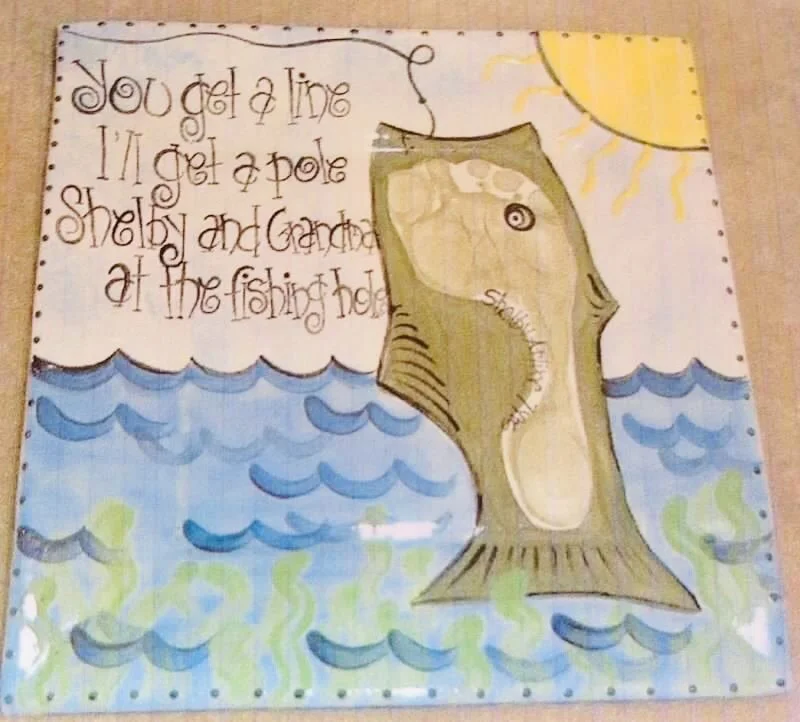 You get a line
I'll get a pole
Shelby and Grandma
at the fishing hole
Shelby